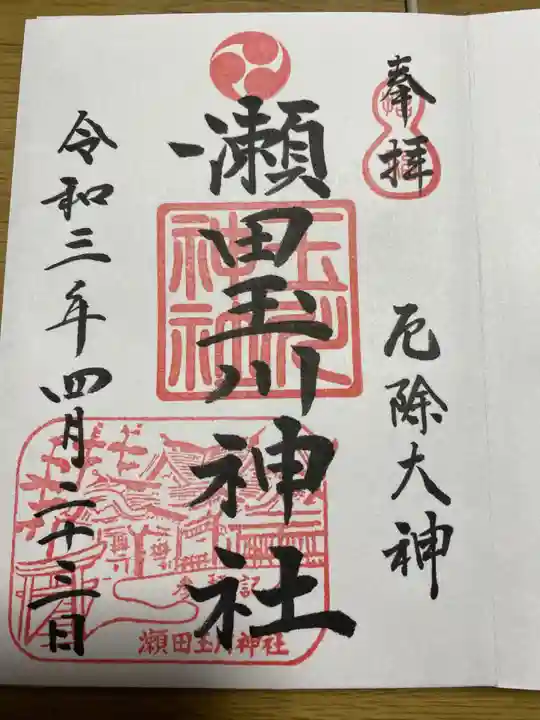 奉拝
厄除大神
瀬田玉川神社
令和三年四月二十三日
瀬田玉川神社